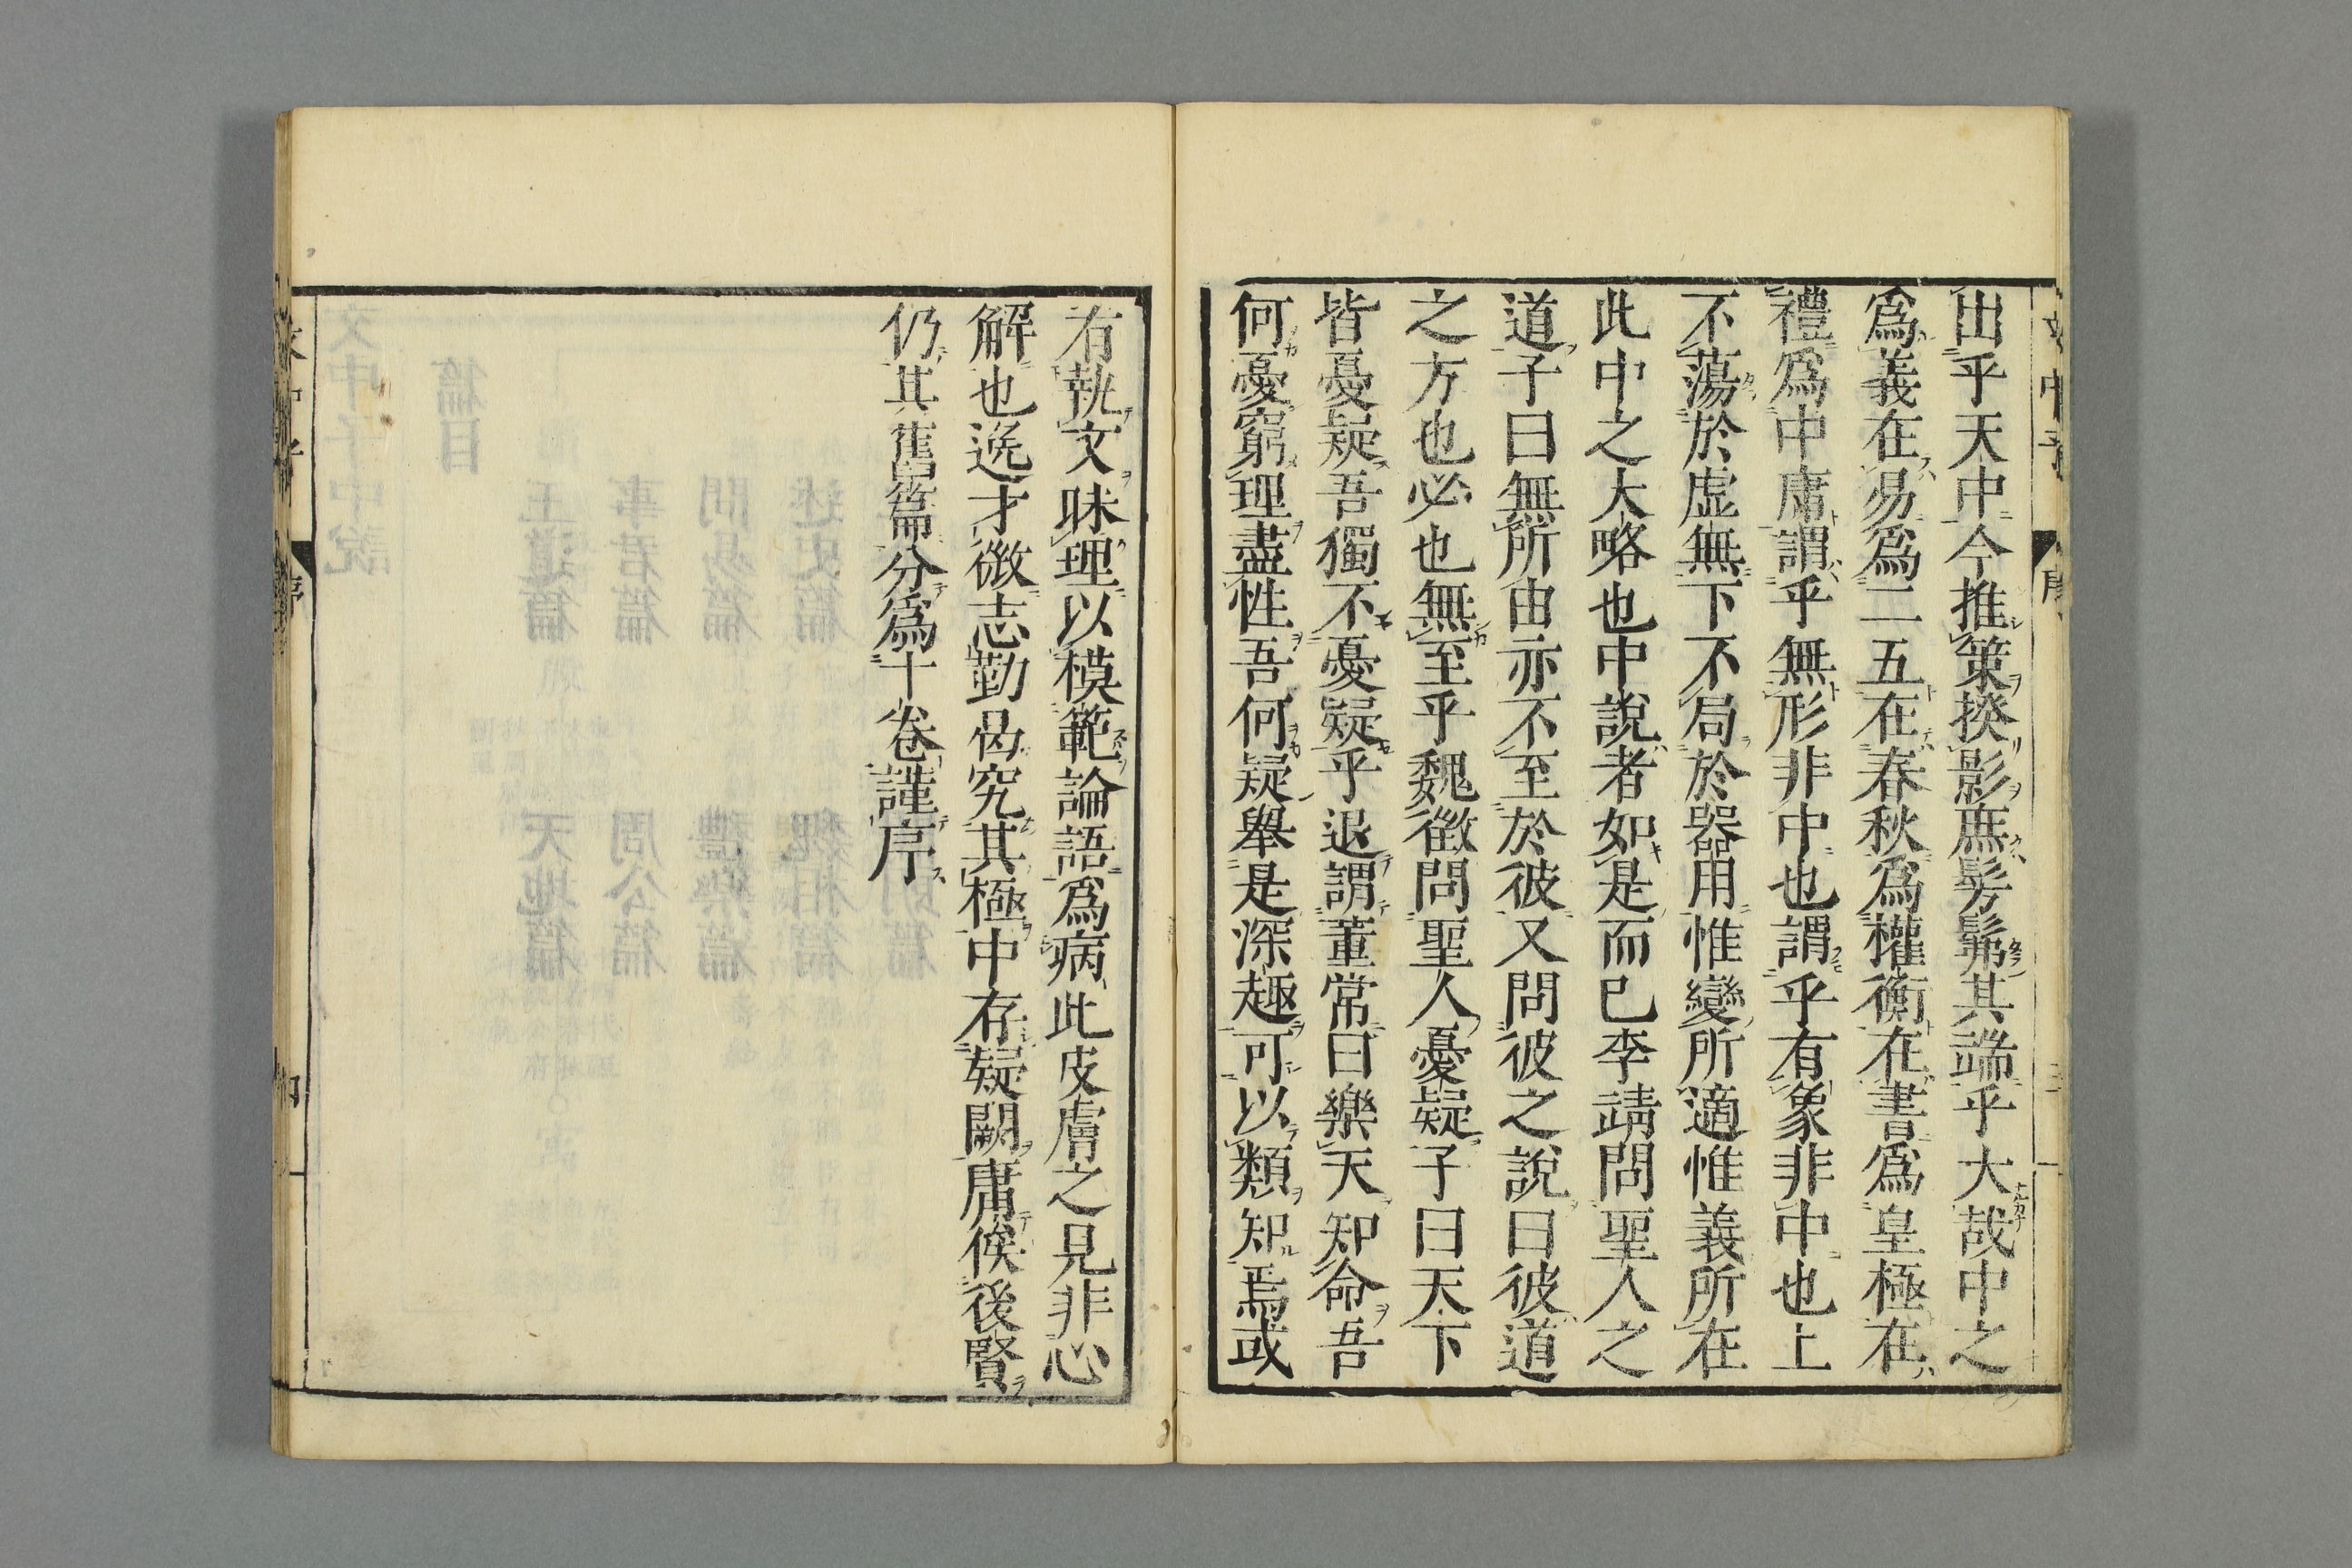 出乎天中今推策揆影庶髣髴其端乎大哉中之
爲義在易爲二五在春秋爲權衡在書爲皇極在
禮爲中庸謂乎無形非中也謂乎有象非中也上
不蕩於虛無下不局於器用惟變所適惟義所在
此中之大略也中說者如是而已李靖問聖人之
道子曰無所由亦不至於彼又問彼之說曰彼道
之方也必也無至乎魏徵問聖人憂疑子曰天下
皆憂疑吾獨不憂疑乎退謂董常曰樂天知命吾
何憂窮理盡性吾何疑舉是深趣可以類知焉或
有執文昧理以模範論語爲病此皮膚之見非心
解也逸才微志勤曷究其極中存疑闕庸俟後賢
仍其舊篇分爲十卷謹序
序